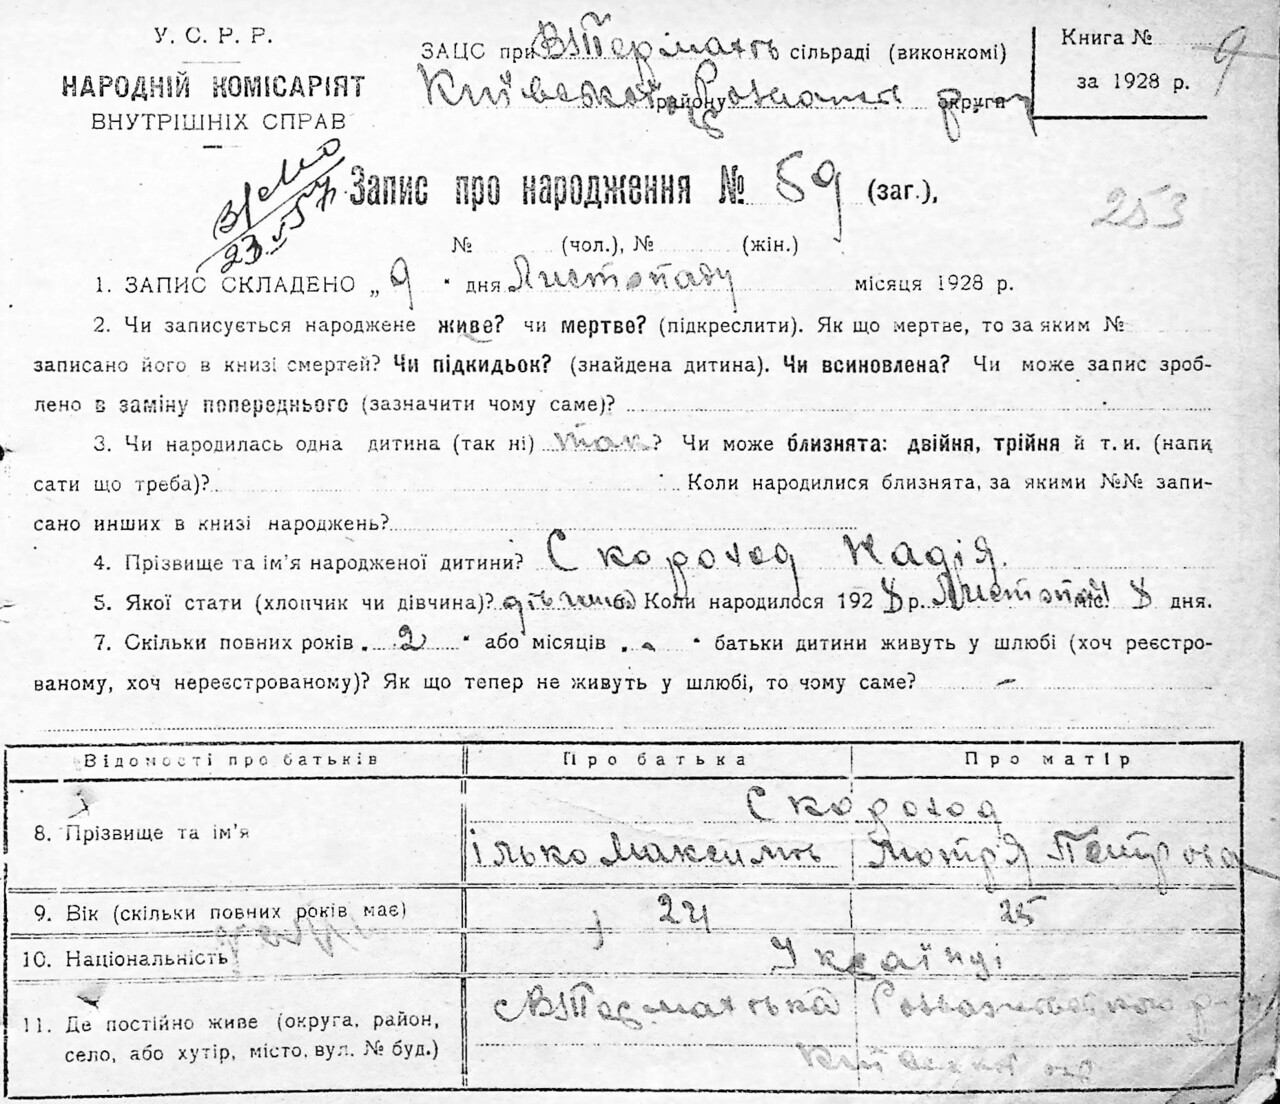 У. С. Р. Р.
НАРОДНІЙ КОМІСАРІЯТ
ВНУТРІШНІХ СПРАВ
ЗАЦС при сільраді (виконкомі)
Київської району округи
Книга № 9
за 1928 р.
23 57
Запис про народження № 59 (заг.),
253
№ (чол.), № (жін.)
1. ЗАПИС СКЛАДЕНО „ 9 " дня Листопаду місяця 1928 р.
2. Чи записується народжене живе? чи мертве? (підкреслити). Як що мертве, то за яким №
записано його в книзі смертей? Чи підкидьок? (знайдена дитина). Чи всиновлена? Чи може запис зроб-
лено в заміну попереднього (зазначити чому саме)?
3. Чи народилась одна дитина (так ні) так? Чи може близнята: двійня, трійня й т. и. (напи
сати що треба)? Коли народилися близнята, за якими №№ запи-
сано инших в книзі народжень?
4. Прізвище та ім'я народженої дитини? Скороход Надія.
5. Якої стати (хлопчик чи дівчина)? дівчина Коли народилося 1928 р. Листопай міс. 8 дня.
7. Скільки повних років 2 " або місяців " батьки дитини живуть у шлюбі (хоч реєстро-
ваному, хоч нереєстрованому)? Як що тепер не живуть у шлюбі, то чому саме? –
Відомості про батьків Про батька Про матір
8. Прізвище та ім'я Скороход
Ілько Максимів Мотря Петрова
9. Вік (скільки повних років має) 24 25
10. Національність Українці
11. Де постійно живе (округа, район,
село, або хутір, місто, вул. № буд.)